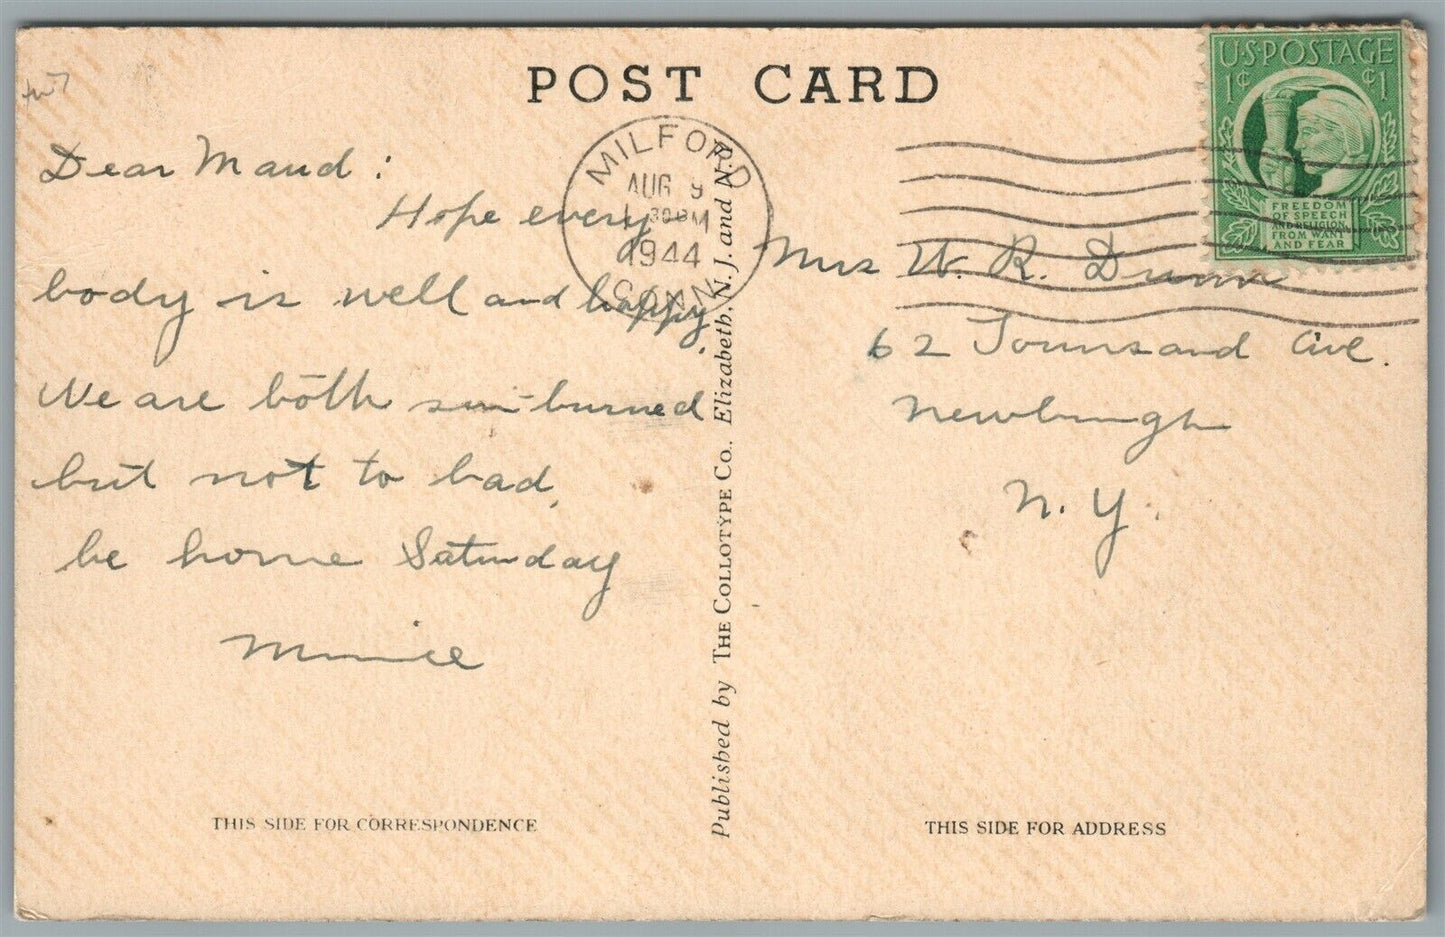 POST CARD
Dear Maud:
Hope every
body is well and happy.
We are both sun-burned
but not to bad,
be home Saturday
THIS SIDE FOR CORRESPONDENCE
Published by THE COLLOTYPE CO., Elizabeth, N. J. and N. R.
MILFORD
AUG 9
30 PM
1944
CONN
U.S. POSTAGE
1¢ ¢1
FREEDOM
OF SPEECH
AND RELIGION
FROM WANT
AND FEAR
Mrs W. R. Dunn
62 Townsand Ave.
Newburgh
N. Y.
THIS SIDE FOR ADDRESS